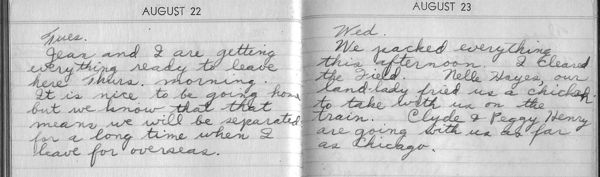 AUGUST 22
Tues.
Jean and I are getting
everything ready to leave
here Thurs. morning.
It is nice to be going home
but we know that that
means we will be separated
for a long time when I
leave for overseas.
AUGUST 23
Wed.
We packed everything
this afternoon. I cleared
the Field. Nelle Hayes, our
land-lady fried us a chicken
to take with us on the
train. Clyde & Peggy Henry
are going with us as far
as Chicago.